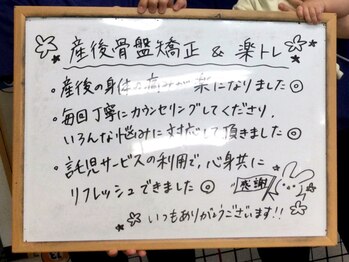 産後骨盤矯正 & 楽トレ
・産後の身体の痛みが楽になりました◎
・毎回丁寧にカウンセリングしてくださり、
いろんな悩みに対応して頂きました◎
・託児サービスの利用で、心身共に
リフレッシュできました◎
感謝
いつもありがとうございます!!